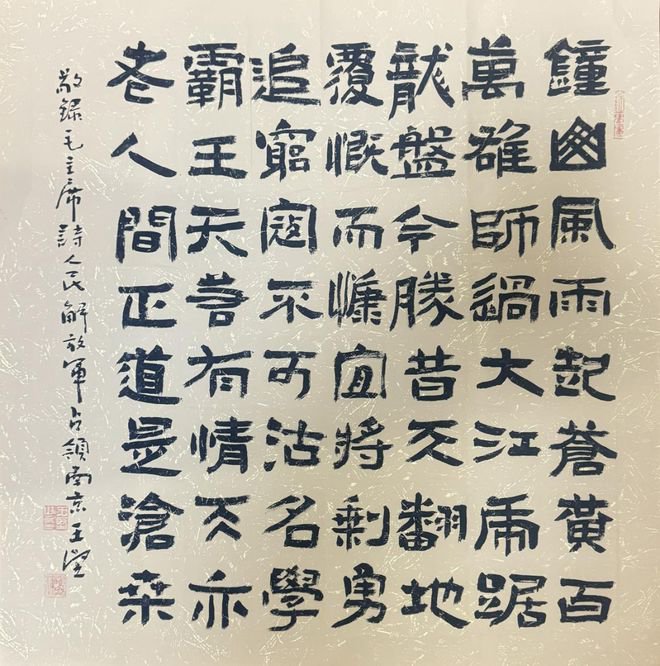 鐘山風雨起蒼黃百
萬雄師過大江虎踞
龍盤今勝昔天翻地
覆慨而慷宜將剩勇
追窮寇不可沽名學
霸王天若有情天亦
老人間正道是滄桑
敬録毛主席詩人民解放軍占領南京王